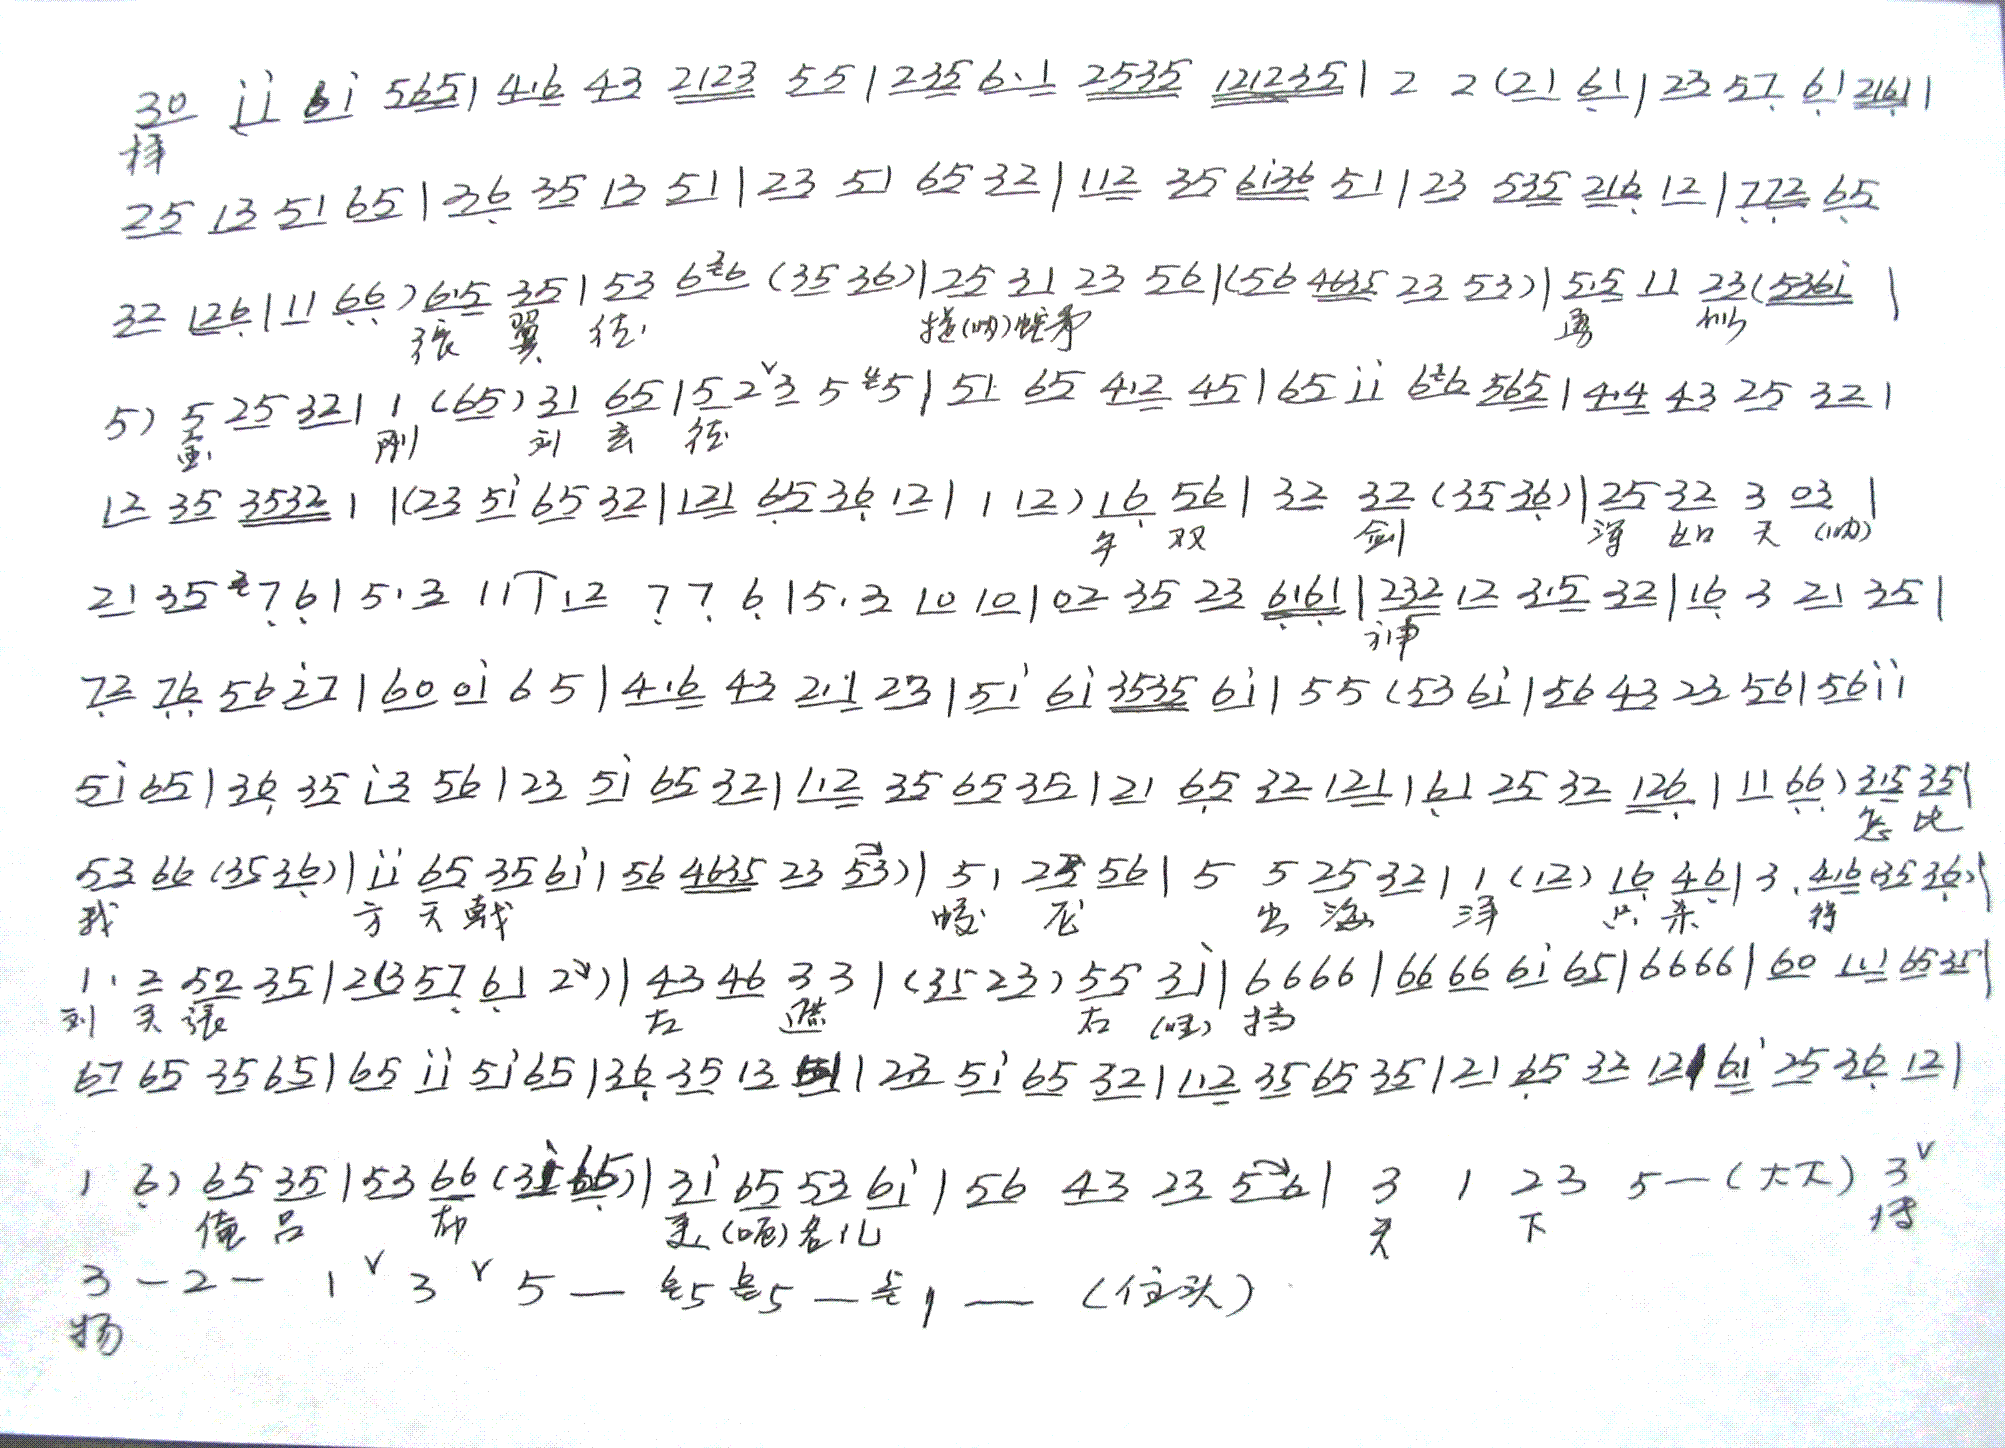 30 i i 6i 565 | 4·6 43 2123 55 | 235 6·1 2535 121235 | 2 2 (21 61 | 23 57 61 2161 |
25 13 51 65 | 36 35 13 51 | 23 51 65 32 | 112 35 6i36 51 | 23 535 216 12 | 772 65
32 126 | 11 66 ) 6·5 35 | 53 6 6 (35 36) | 25 31 23 56 | (56 4635 23 53) | 5·5 11 23 (536i |
张 翼 德 (呐) 蛇矛 勇
5) 5 25 32 | 1 (65) 31 65 | 5 2 ˅ 3 5 5 | 51 65 4·2 45 | 65 i i 6 6 565 | 4·4 43 25 32 |
刚 刘 玄 德
12 35 3532 1 | (23 5i 65 32 | 121 65 36 12 | 1 12 ) 16 56 | 32 32 (35 36) | 25 32 3 03 |
双 剑 浑 如 天 (呐)
21 35 7 6 | 5·3 1 1 1 12 7 7 6 | 5·3 10 10 | 02 35 23 6161 | 232 12 3·5 32 | 16 3 21 35 |
神
72 76 56 27 | 60 0i 65 | 4·6 43 2·1 23 | 5i 6i 3535 6i | 55 (53 6i | 56 43 23 56 | 56 i i
5i 65 | 36 35 i3 56 | 23 5i 65 32 | 1·2 35 65 35 | 21 65 32 121 | 61 25 32 126 | 11 66 ) 3·5 35 |
怎 比
53 66 (35 36) | i i 65 35 6i | 56 4635 23 53) | 51 23 56 | 5 5 25 32 | 1 (12) 16 46 | 3· 4·6 (35 36) |
我 方 天 戟 蛟 龙 出 海 洋 只 杀 得
1· 2 52 35 | 2(3 57 61 2) | 43 46 33 | (35 23) 55 3i | 6666 | 66 66 6i 65 | 6666 | 60 111 6535 |
刘 关 张 左 遮 右 (哇) 挡
67 65 35 65 | 65 i i 5i 65 | 36 35 13 51 | 23 5i 65 32 | 1·2 35 65 35 | 21 65 32 12 | 6i 25 36 12 |
1 6) 65 35 | 53 66 (3i 65) | 3i 65 53 6i | 56 43 23 56 | 3 1 23 5 — (大大) 3 ˅
俺 吕 布 美 (呃) 名儿 天 下 传
3 — 2 — 1 ˅ 3 ˅ 5 — 5 5 — 1 — (住头)
扬